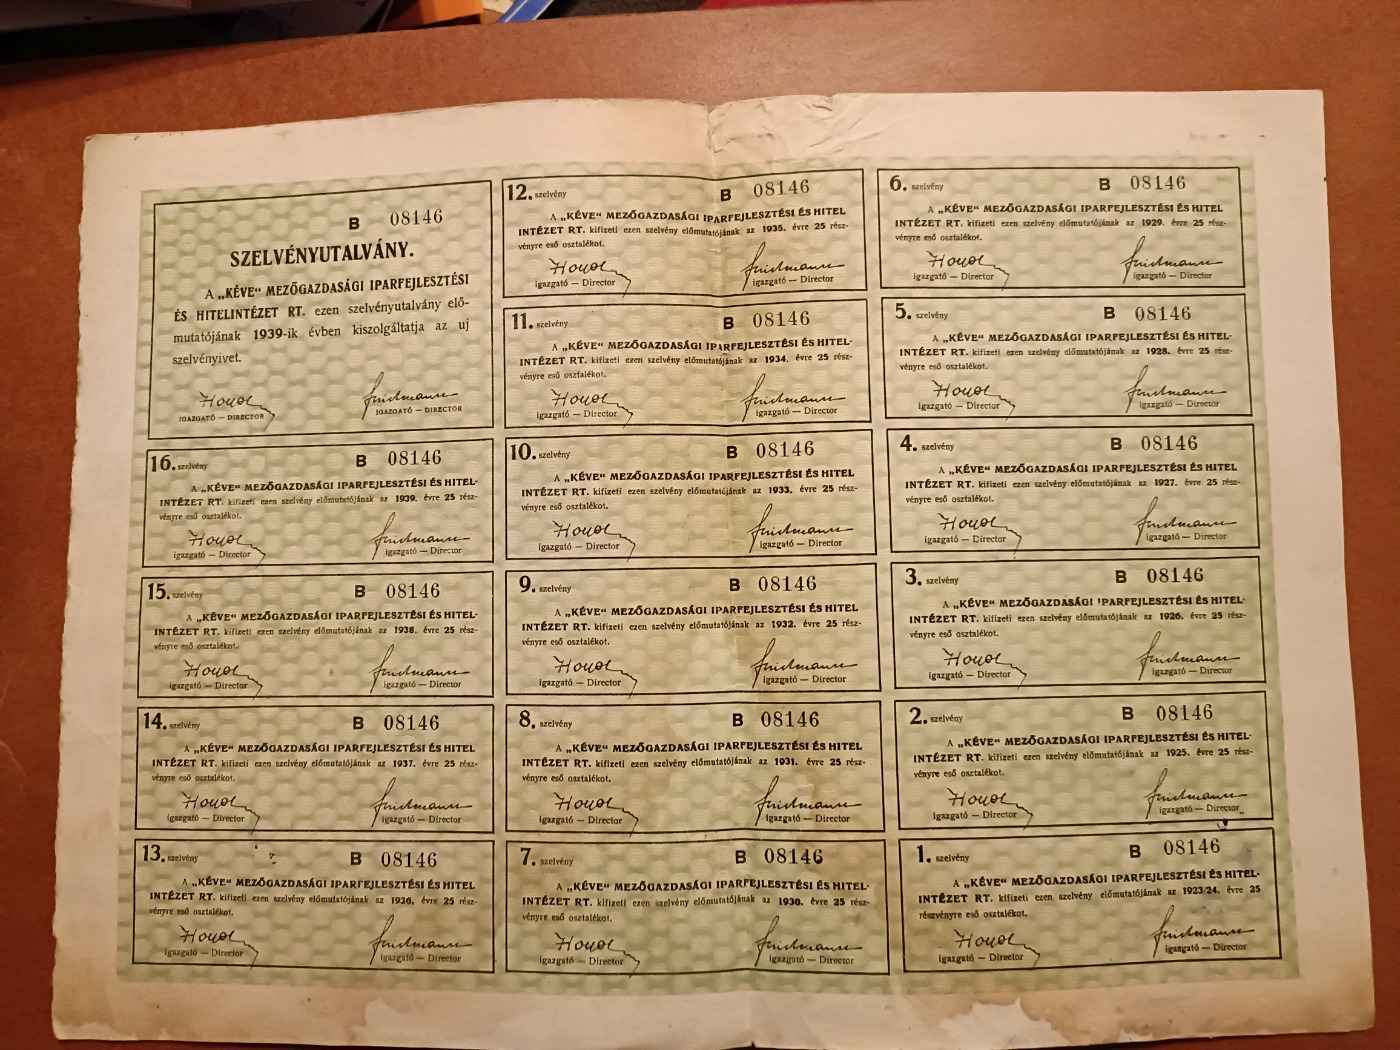 B 08146
SZELVÉNYUTALVÁNY.
A „KÉVE“ MEZŐGAZDASÁGI IPARFEJLESZTÉSI
ÉS HITELINTÉZET RT. ezen szelvényutalvány elő-
mutatójának 1939-ik évben kiszolgáltatja az uj
szelvényivet.
IGAZGATÓ — DIRECTOR IGAZGATÓ — DIRECTOR
16. szelvény B 08146
A „KÉVE“ MEZŐGAZDASÁGI IPARFEJLESZTÉSI ÉS HITEL-
INTÉZET RT. kifizeti ezen szelvény előmutatójának az 1939. évre 25 rész-
vényre eső osztalékot.
igazgató — Director igazgató — Director
15. szelvény B 08146
A „KÉVE“ MEZŐGAZDASÁGI IPARFEJLESZTÉSI ÉS HITEL-
INTÉZET RT. kifizeti ezen szelvény előmutatójának az 1938. évre 25 rész-
vényre eső osztalékot.
igazgató — Director igazgató — Director
14. szelvény B 08146
A „KÉVE“ MEZŐGAZDASÁGI IPARFEJLESZTÉSI ÉS HITEL
INTÉZET RT. kifizeti ezen szelvény előmutatójának az 1937. évre 25 rész-
vényre eső osztalékot.
igazgató — Director igazgató — Director
13. szelvény B 08146
A „KÉVE“ MEZŐGAZDASÁGI IPARFEJLESZTÉSI ÉS HITEL
INTÉZET RT. kifizeti ezen szelvény előmutatójának az 1936. évre 25 rész-
vényre eső osztalékot.
igazgató — Director igazgató — Director
12. szelvény B 08146
A „KÉVE“ MEZŐGAZDASÁGI IPARFEJLESZTÉSI ÉS HITEL
INTÉZET RT. kifizeti ezen szelvény előmutatójának az 1935. évre 25 rész-
vényre eső osztalékot.
igazgató — Director igazgató — Director
11. szelvény B 08146
A „KÉVE“ MEZŐGAZDASÁGI IPARFEJLESZTÉSI ÉS HITEL-
INTÉZET RT. kifizeti ezen szelvény előmutatójának az 1934. évre 25 rész-
vényre eső osztalékot.
igazgató — Director igazgató — Director
10. szelvény B 08146
A „KÉVE“ MEZŐGAZDASÁGI IPARFEJLESZTÉSI ÉS HITEL
INTÉZET RT. kifizeti ezen szelvény előmutatójának az 1933. évre 25 rész-
vényre eső osztalékot.
igazgató — Director igazgató — Director
9. szelvény B 08146
A „KÉVE“ MEZŐGAZDASÁGI IPARFEJLESZTÉSI ÉS HITEL
INTÉZET RT. kifizeti ezen szelvény előmutatójának az 1932. évre 25 rész-
vényre eső osztalékot.
igazgató — Director igazgató — Director
8. szelvény B 08146
A „KÉVE“ MEZŐGAZDASÁGI IPARFEJLESZTÉSI ÉS HITEL
INTÉZET RT. kifizeti ezen szelvény előmutatójának az 1931. évre 25 rész-
vényre eső osztalékot.
igazgató — Director igazgató — Director
7. szelvény B 08146
A „KÉVE“ MEZŐGAZDASÁGI IPARFEJLESZTÉSI ÉS HITEL-
INTÉZET RT. kifizeti ezen szelvény előmutatójának az 1930. évre 25 rész-
vényre eső osztalékot.
igazgató — Director igazgató — Director
6. szelvény B 08146
A „KÉVE“ MEZŐGAZDASÁGI IPARFEJLESZTÉSI ÉS HITEL
INTÉZET RT. kifizeti ezen szelvény előmutatójának az 1929. évre 25 rész-
vényre eső osztalékot.
igazgató — Director igazgató — Director
5. szelvény B 08146
A „KÉVE“ MEZŐGAZDASÁGI IPARFEJLESZTÉSI ÉS HITEL-
INTÉZET RT. kifizeti ezen szelvény előmutatójának az 1928. évre 25 rész-
vényre eső osztalékot.
igazgató — Director igazgató — Director
4. szelvény B 08146
A „KÉVE“ MEZŐGAZDASÁGI IPARFEJLESZTÉSI ÉS HITEL
INTÉZET RT. kifizeti ezen szelvény előmutatójának az 1927. évre 25 rész-
vényre eső osztalékot.
igazgató — Director igazgató — Director
3. szelvény B 08146
A „KÉVE“ MEZŐGAZDASÁGI IPARFEJLESZTÉSI ÉS HITEL-
INTÉZET RT. kifizeti ezen szelvény előmutatójának az 1926. évre 25 rész-
vényre eső osztalékot.
igazgató — Director igazgató — Director
2. szelvény B 08146
A „KÉVE“ MEZŐGAZDASÁGI IPARFEJLESZTÉSI ÉS HITEL-
INTÉZET RT. kifizeti ezen szelvény előmutatójának az 1925. évre 25 rész-
vényre eső osztalékot.
igazgató — Director igazgató — Director
1. szelvény B 08146
A „KÉVE“ MEZŐGAZDASÁGI IPARFEJLESZTÉSI ÉS HITEL-
INTÉZET RT. kifizeti ezen szelvény előmutatójának az 1923/24. évre 25
részvényre eső osztalékot.
igazgató — Director igazgató — Director